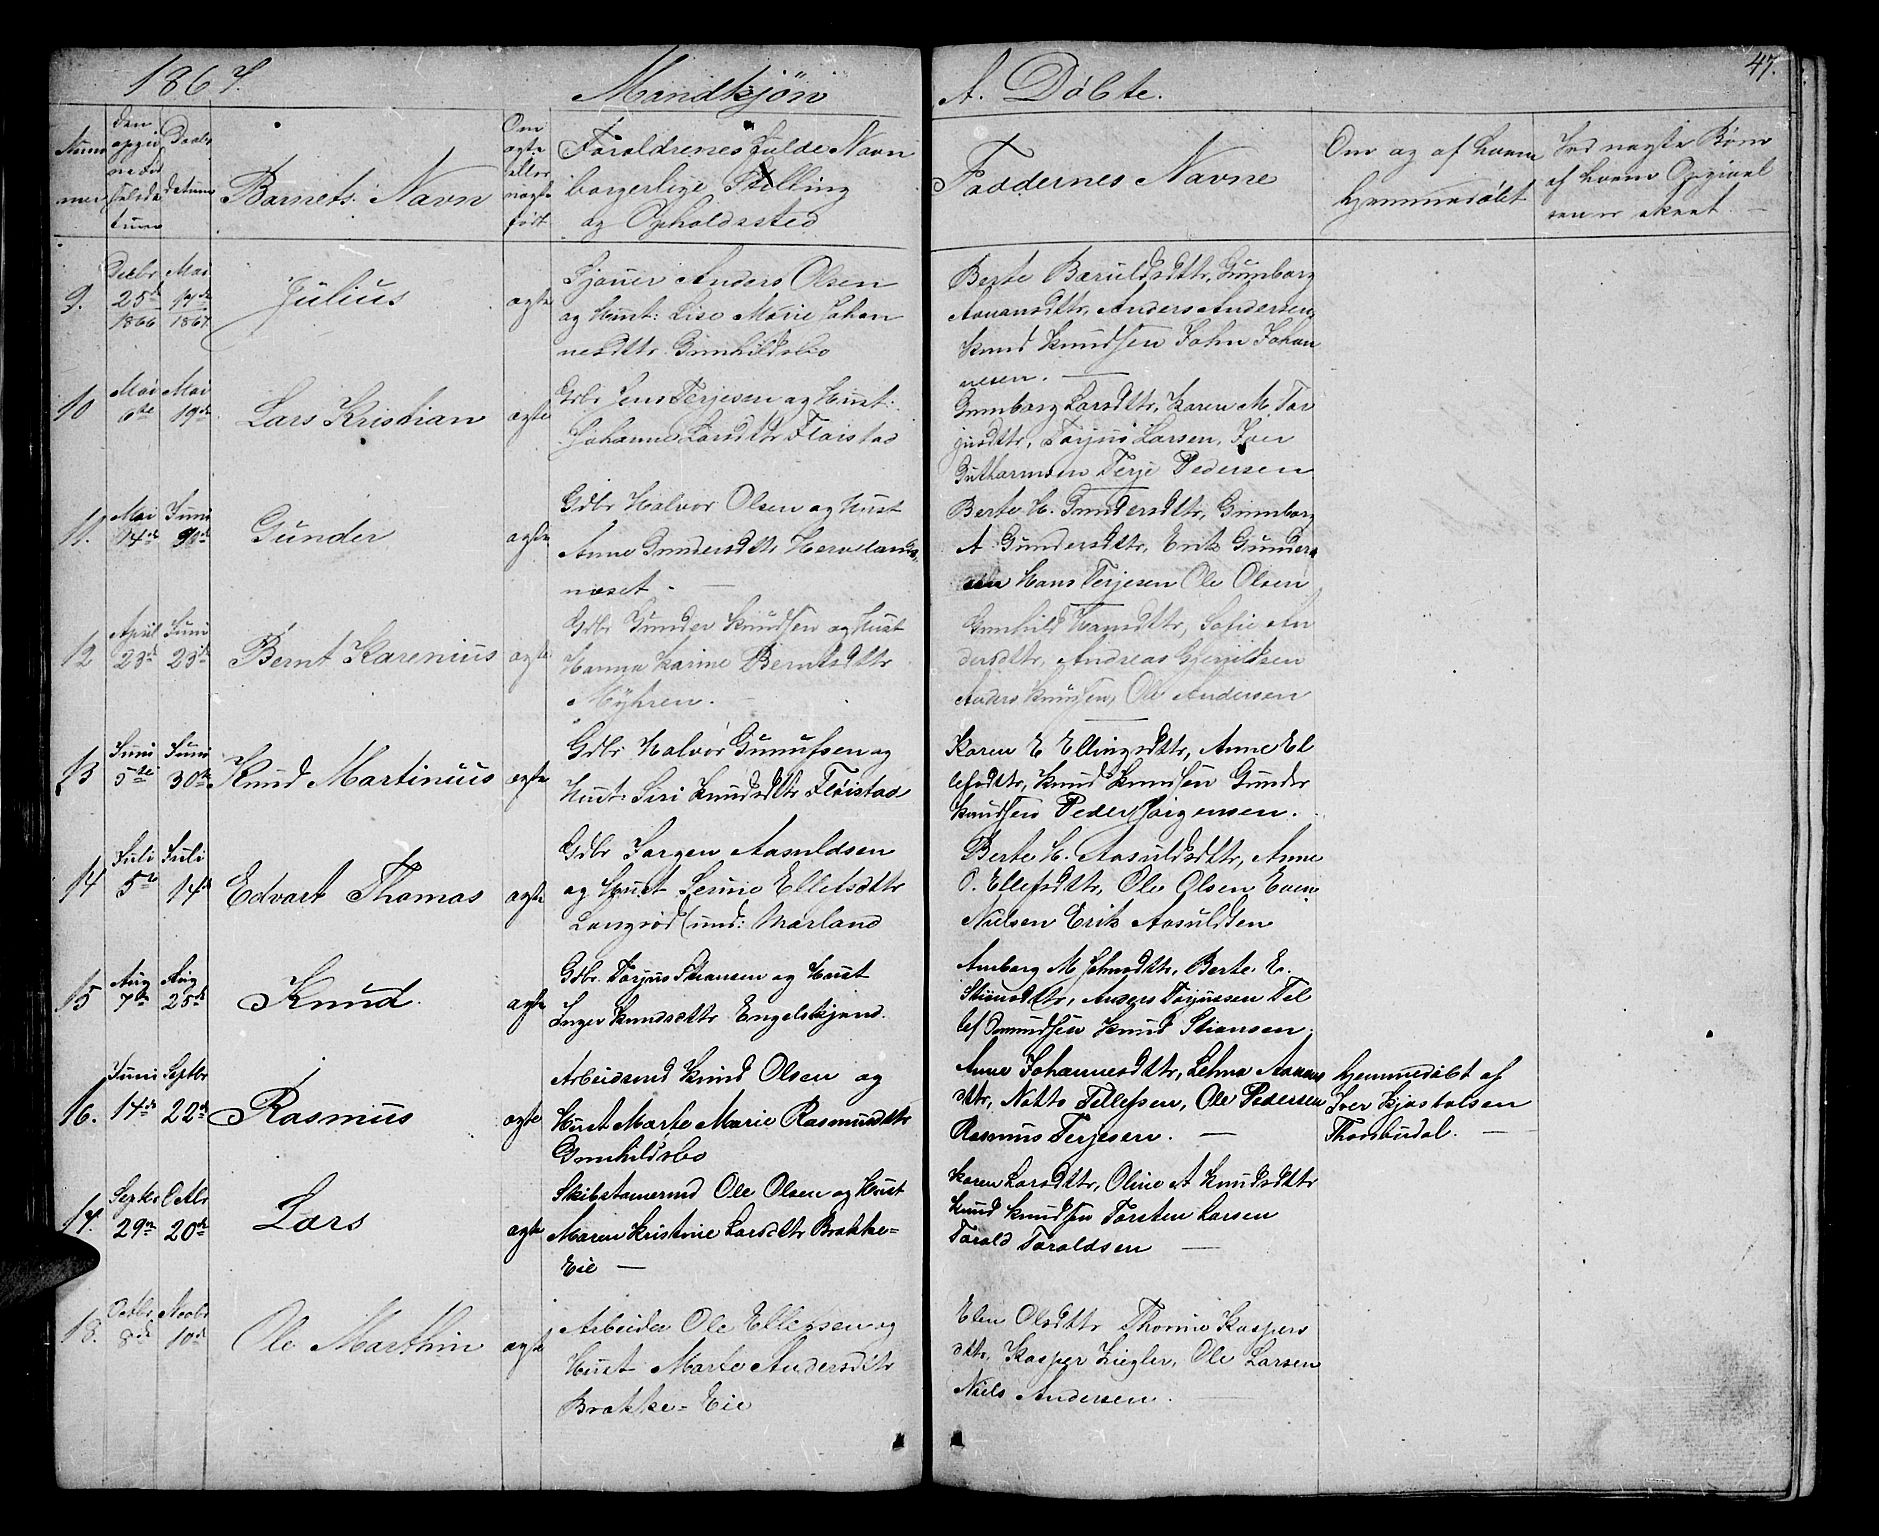 1867. Mandkjön A. Döbte. 47.
Num
mer
den
opgiv
ne Fød
selsda
tum
Daabs
datum
Barnets Navn
Om
ægte
eller
uægte
født
Forældrenes fulde Navn
borgerlige Stilling
og Opholdssted
Faddernes Navne
Om og af hvem
hjemmedøbt
Ved uægte Børn
af hvem Opgivel
sen er skeet. —
9. Decbr 25de 1866 Mai 1867 Julius ægte
Sjøuer Anders Olsen
og Hust: Lise Marie Johan
nesdttr Gunhildsbo
Berte Baruldsdttr, Gunborg
Aanansdttr, Anders Andersen,
Knud Knudsen John Johan
nesen. —
10 Mai 6te Mai 19de Lars Kristian ægte
Gdbr Jens Terjesen og Hust.
Johanne Larsdttr Flaistad
Gunborg Larsdttr, Karen M. Tar
jusdttr, Tarjus Larsen, Iver
Guttormsen Terje Pedersen
11. Mai 14de Juni 9de Gunder ægte
Gdbr Halvor Olsen og Hust
Anne Gundersdttr Hervelands
næset —
Berte H. Gundersdttr, Gunborg
A. Gundersdttr, Erik Gunder
sen Hans Terjesen Ole Olsen
12 April 23de Juni 23de Bernt Karenius ægte
Gdbr Gunder Knudsen og Hust
Hanna Karine Berntsdttr
Myhren. —
Gunhild Hansdttr, Sofie An
dersdttr, Andreas Gjeruldsen
Anders Knudsen, Ole Andersen
13 Juni 5te Juni 30te Knud Martinius ægte
Gdbr Halvor Gunufsen og
Hust: Siri Knudsdttr Flaistad
Karen E Ellingsdttr, Anne El
lefsdttr, Knud Knudsen Gunder
Knudsen Peder Jörgensen.
14 Juli 5te Juli 14de Edvart Thomas ægte
Gdbr Jørgen Aasuldsen
og Hust Serine Ellefsdttr
Langrød (und: Mørland
Berte H. Aasuldsdttr, Anne
O. Ellefsdttr, Ole Olsen Even
Nielsen Erik Aasuldsen
15 Aug 7de Aug 25de Knud. ægte
Gdbr. Tarjus Stiansen og Hust
Inger Knudsdttr Engelskjønd.
Amborg M Johnsdttr, Berte E.
Stiansdttr, Anders Tarjussen Tel
lef Omundsen Knud Stiansen.
16. Juni 14de Septbr 22de Rasmus ægte
Arbeidsmd Knud Olsen og
Hust Marte Marie Rasmusdttr
Gunhildsbo
Anne Johannesdttr, Lehne Aanons
dttr, Nitto Tellefsen, Ole Pedersen
Rasmus Terjesen. —
Hjemmedøbt af
Iver Kjøstolsen
Thorsbudal. —
17. Septbr 29de Octbr 20de Lars ægte
Skibstømermd Ole Olsen og Hust
Maren Kristine Larsdttr Brække=
Eie —
Karen Larsdttr, Oline A Knudsdttr
Knud Knudsen Torsten Larsen
Torald Toraldsen —
18. Octbr 8de Novbr 10de Ole Marthin ægte
Arbeider Ole Ellefsen og
Hust Marte Andersdttr
Brække=Eie
Elen Olsdttr Thomine Kaspers
dttr, Kasper Ziegler, Ole Larsen
Niels Andersen. —